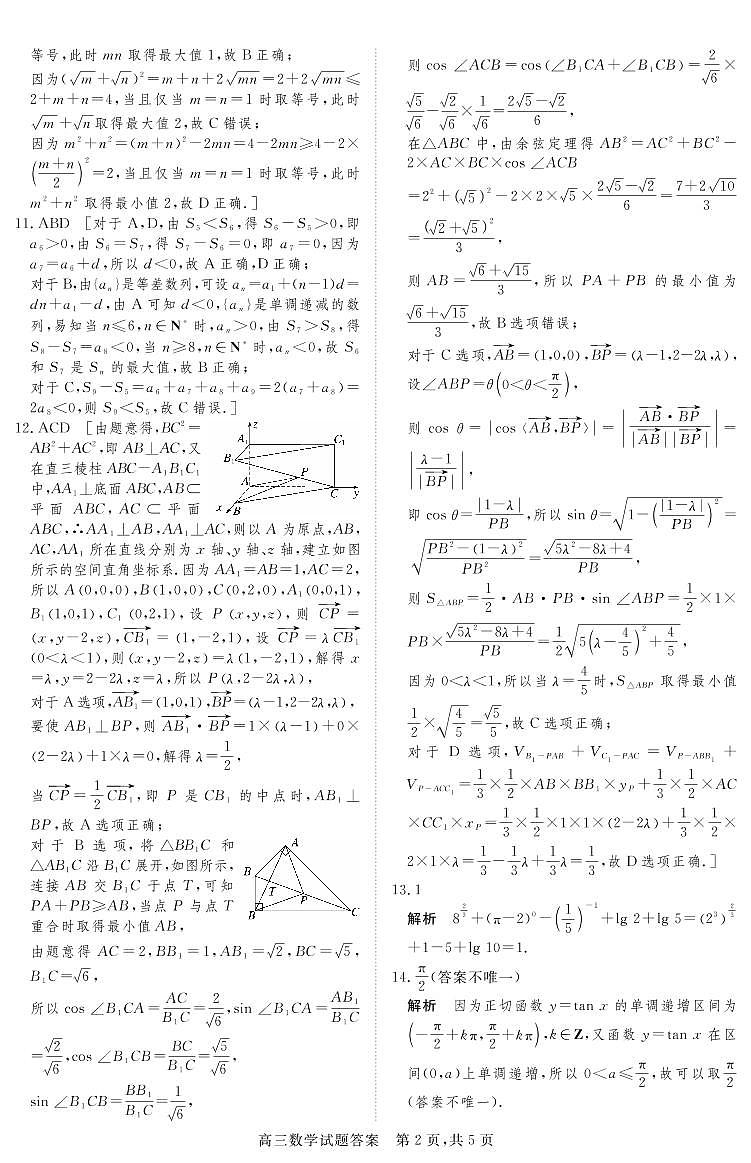 等号,此时 mn 取得最大值 1,故 B 正确;
因为(√m+√n)²=m+n+2√mn=2+2√mn≤
2+m+n=4,当且仅当 m=n=1 时取等号,此时
√m+√n取得最大值 2,故 C 错误;
因为 m²+n²=(m+n)²-2mn=4-2mn≥4-2×
((m+n)/2)²=2,当且仅当 m=n=1 时取等号,此时
m²+n² 取得最小值 2,故 D 正确.]
11. ABD [对于 A,D,由 S₅<S₆,得 S₆-S₅>0,即
a₆>0,由 S₆=S₇,得 S₇-S₆=0,即 a₇=0,因为
a₇=a₆+d,所以 d<0,故 A 正确,D 正确;
对于 B,由{aₙ}是等差数列,可设 aₙ=a₁+(n-1)d=
dn+a₁-d,由 A 可知 d<0,{aₙ}是单调递减的数
列,易知当 n≤6,n∈N* 时,aₙ>0,由 S₇>S₈,得
S₈-S₇=a₈<0,当 n≥8,n∈N* 时,aₙ<0,故 S₆
和 S₇ 是 Sₙ 的最大值,故 B 正确;
对于 C,S₉-S₅=a₆+a₇+a₈+a₉=2(a₇+a₈)=
2a₈<0,则 S₉<S₅,故 C 错误.]
12. ACD [由题意得,BC²=
AB²+AC²,即 AB⊥AC,又
在直三棱柱 ABC-A₁B₁C₁
中,AA₁⊥底面 ABC,AB⊂
平面 ABC,AC⊂平面
z
A₁
C₁
B₁
P
A
C
y
x
B
ABC,∴AA₁⊥AB,AA₁⊥AC,则以 A 为原点,AB,
AC,AA₁ 所在直线分别为 x 轴、y 轴、z 轴,建立如图
所示的空间直角坐标系.因为 AA₁=AB=1,AC=2,
所以 A(0,0,0),B(1,0,0),C(0,2,0),A₁(0,0,1),
B₁(1,0,1),C₁(0,2,1),设 P(x,y,z),则 CP→=
(x,y-2,z),CB₁→=(1,-2,1),设 CP→=λCB₁→
(0<λ<1),则(x,y-2,z)=λ(1,-2,1),解得 x
=λ,y=2-2λ,z=λ,所以 P(λ,2-2λ,λ),
对于 A 选项,AB₁→=(1,0,1),BP→=(λ-1,2-2λ,λ),
要使 AB₁⊥BP,则 AB₁→·BP→=1×(λ-1)+0×
(2-2λ)+1×λ=0,解得 λ=1/2,
当 CP→=1/2 CB₁→,即 P 是 CB₁ 的中点时,AB₁⊥
BP,故 A 选项正确;
对于 B 选项,将△BB₁C 和
△AB₁C 沿 B₁C 展开,如图所示,
连接 AB 交 B₁C 于点 T,可知
PA+PB≥AB,当点 P 与点 T
重合时取得最小值 AB,
A
B
T
P
B
C
由题意得 AC=2,BB₁=1,AB₁=√2,BC=√5,
B₁C=√6,
所以 cos ∠B₁CA=AC/B₁C=2/√6,sin ∠B₁CA=AB₁/B₁C
=√2/√6,cos ∠B₁CB=BC/B₁C=√5/√6,
sin ∠B₁CB=BB₁/B₁C=1/√6,
则 cos ∠ACB=cos(∠B₁CA+∠B₁CB)=2/√6×
√5/√6-√2/√6×1/√6=(2√5-√2)/6,
在△ABC 中,由余弦定理得 AB²=AC²+BC²-
2×AC×BC×cos ∠ACB
=2²+(√5)²-2×2×√5×(2√5-√2)/6=(7+2√10)/3
=(√2+√5)²/3,
则 AB=(√6+√15)/3,所以 PA+PB 的最小值为
(√6+√15)/3,故 B 选项错误;
对于 C 选项,AB→=(1,0,0),BP→=(λ-1,2-2λ,λ),
设∠ABP=θ(0<θ<π/2),
则 cos θ=|cos〈AB→,BP→〉|=|AB→·BP→/(|AB→||BP→|)|=
|(λ-1)/|BP→||,
即 cos θ=|1-λ|/PB,所以 sin θ=√(1-(|1-λ|/PB)²)=
√((PB²-(1-λ)²)/PB²)=√(5λ²-8λ+4)/PB,
则 S△ABP=1/2·AB·PB·sin ∠ABP=1/2×1×
PB×√(5λ²-8λ+4)/PB=1/2√(5(λ-4/5)²+4/5),
因为 0<λ<1,所以当 λ=4/5 时,S△ABP 取得最小值
1/2×√(4/5)=√5/5,故 C 选项正确;
对于 D 选项,V B₁-PAB+V C₁-PAC=V P-ABB₁+
V P-ACC₁=1/3×1/2×AB×BB₁×yP+1/3×1/2×AC
×CC₁×xP=1/3×1/2×1×1×(2-2λ)+1/3×1/2×
2×1×λ=1/3-1/3λ+1/3λ=1/3,故 D 选项正确.]
13. 1
解析 8^(2/3)+(π-2)⁰-(1/5)⁻¹+lg 2+lg 5=(2³)^(2/3)
+1-5+lg 10=1.
14. π/2(答案不唯一)
解析 因为正切函数 y=tan x 的单调递增区间为
(-π/2+kπ,π/2+kπ),k∈Z,又函数 y=tan x 在区
间(0,a)上单调递增,所以 0<a≤π/2,故可以取π/2
(答案不唯一).
高三数学试题答案 第 2 页,共 5 页